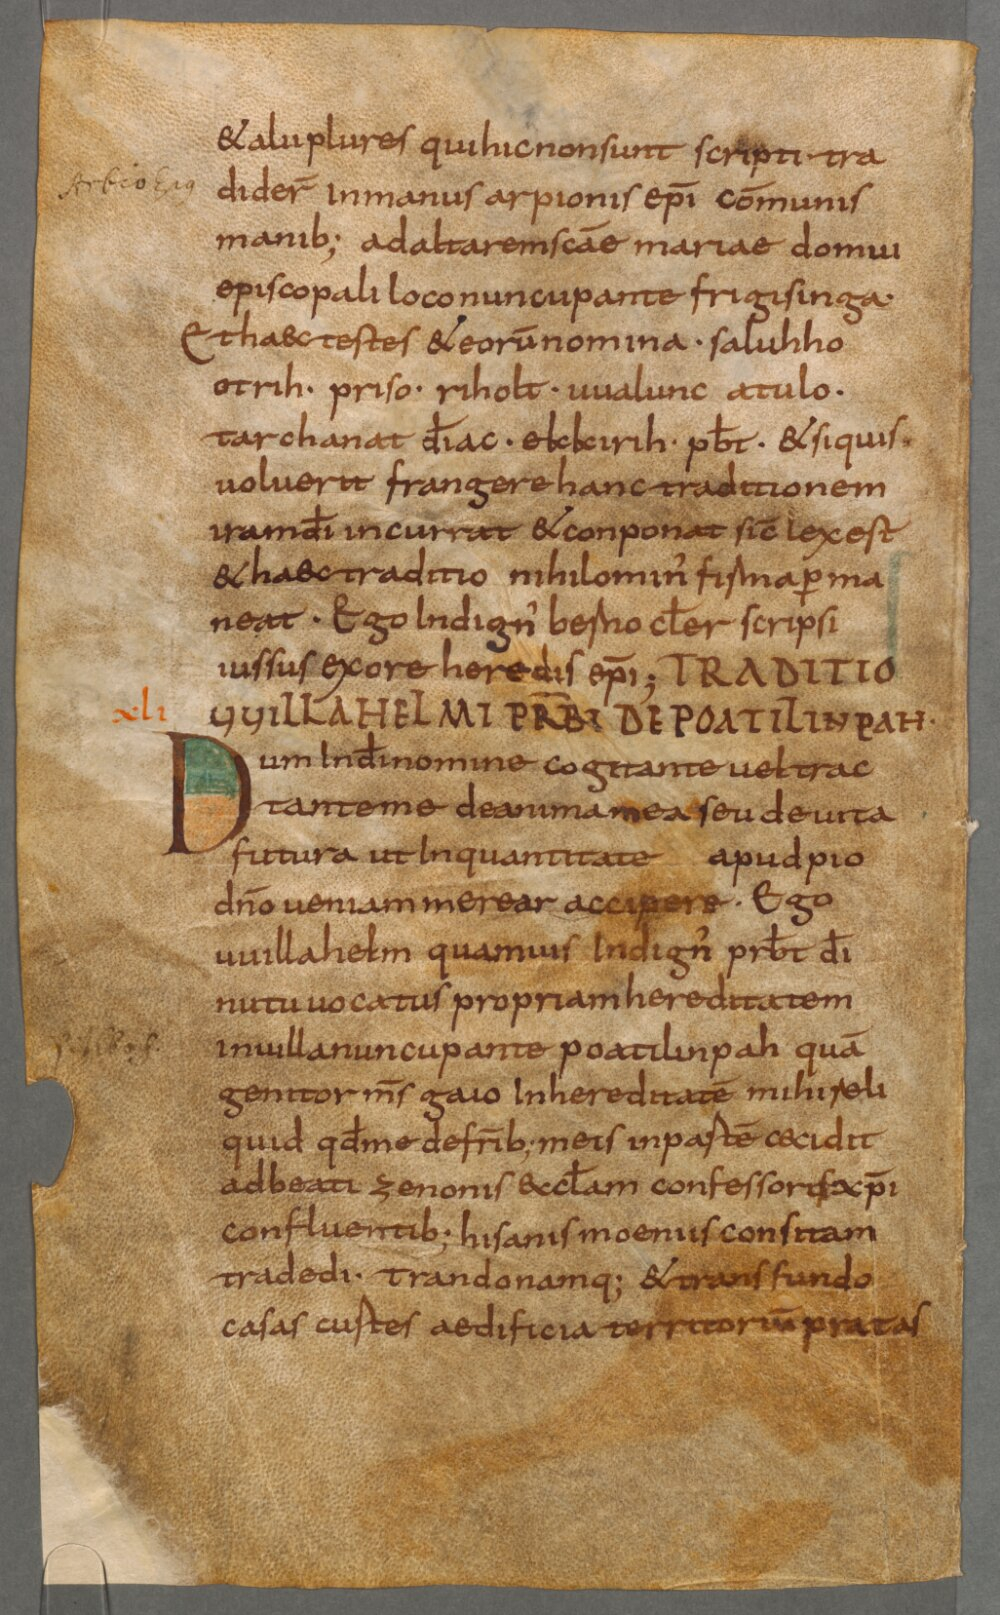 & alii plures qui hic non sunt scripti · tra
dider̄ In manus arpionis ep̄i cōmunis
manib; ad altarem scāe mariae domui
episcopali loco nuncupante frigisinga·
Et haec testes & eorū nomina · saluhho
otrih · priso · riholt · uualunc atulo ·
tarchanat diac̄ · ekkirih · pb̄t · & siquis
uoluerit frangere hanc traditionem
iram dī incurrat & conponat sic̄ lex est
& haec traditio nihilomin' firma p̄ma
neat · Ego Indign' berno cl̄er scripsi
iussus ex ore heredis ep̄i; TRADITIO
xli UUILLAHELMI PRB̄I DE POATILINPAH·
Dum In dī nomine cogitante uel trac
tante me de anima mea seu de uita
futura ut In quantitate apud pio
dn̄o ueniam merear accipere · Ego
uuillahelm quamuis Indign' prb̄t dī
nutu uocatus propriam hereditatem
in uilla nuncupante poatilinpah quā
genitor m̄s gaio In hereditatē mihi reli
quid qd̄ me de fr̄ib; meis in partē cecidit
ad beati zenonis eccl̄am confessoris xp̄i
confluentib; hisanis moeniis consitam
tradedi · trandonamq; & transfundo
casas curtes aedificia territoriū pratas